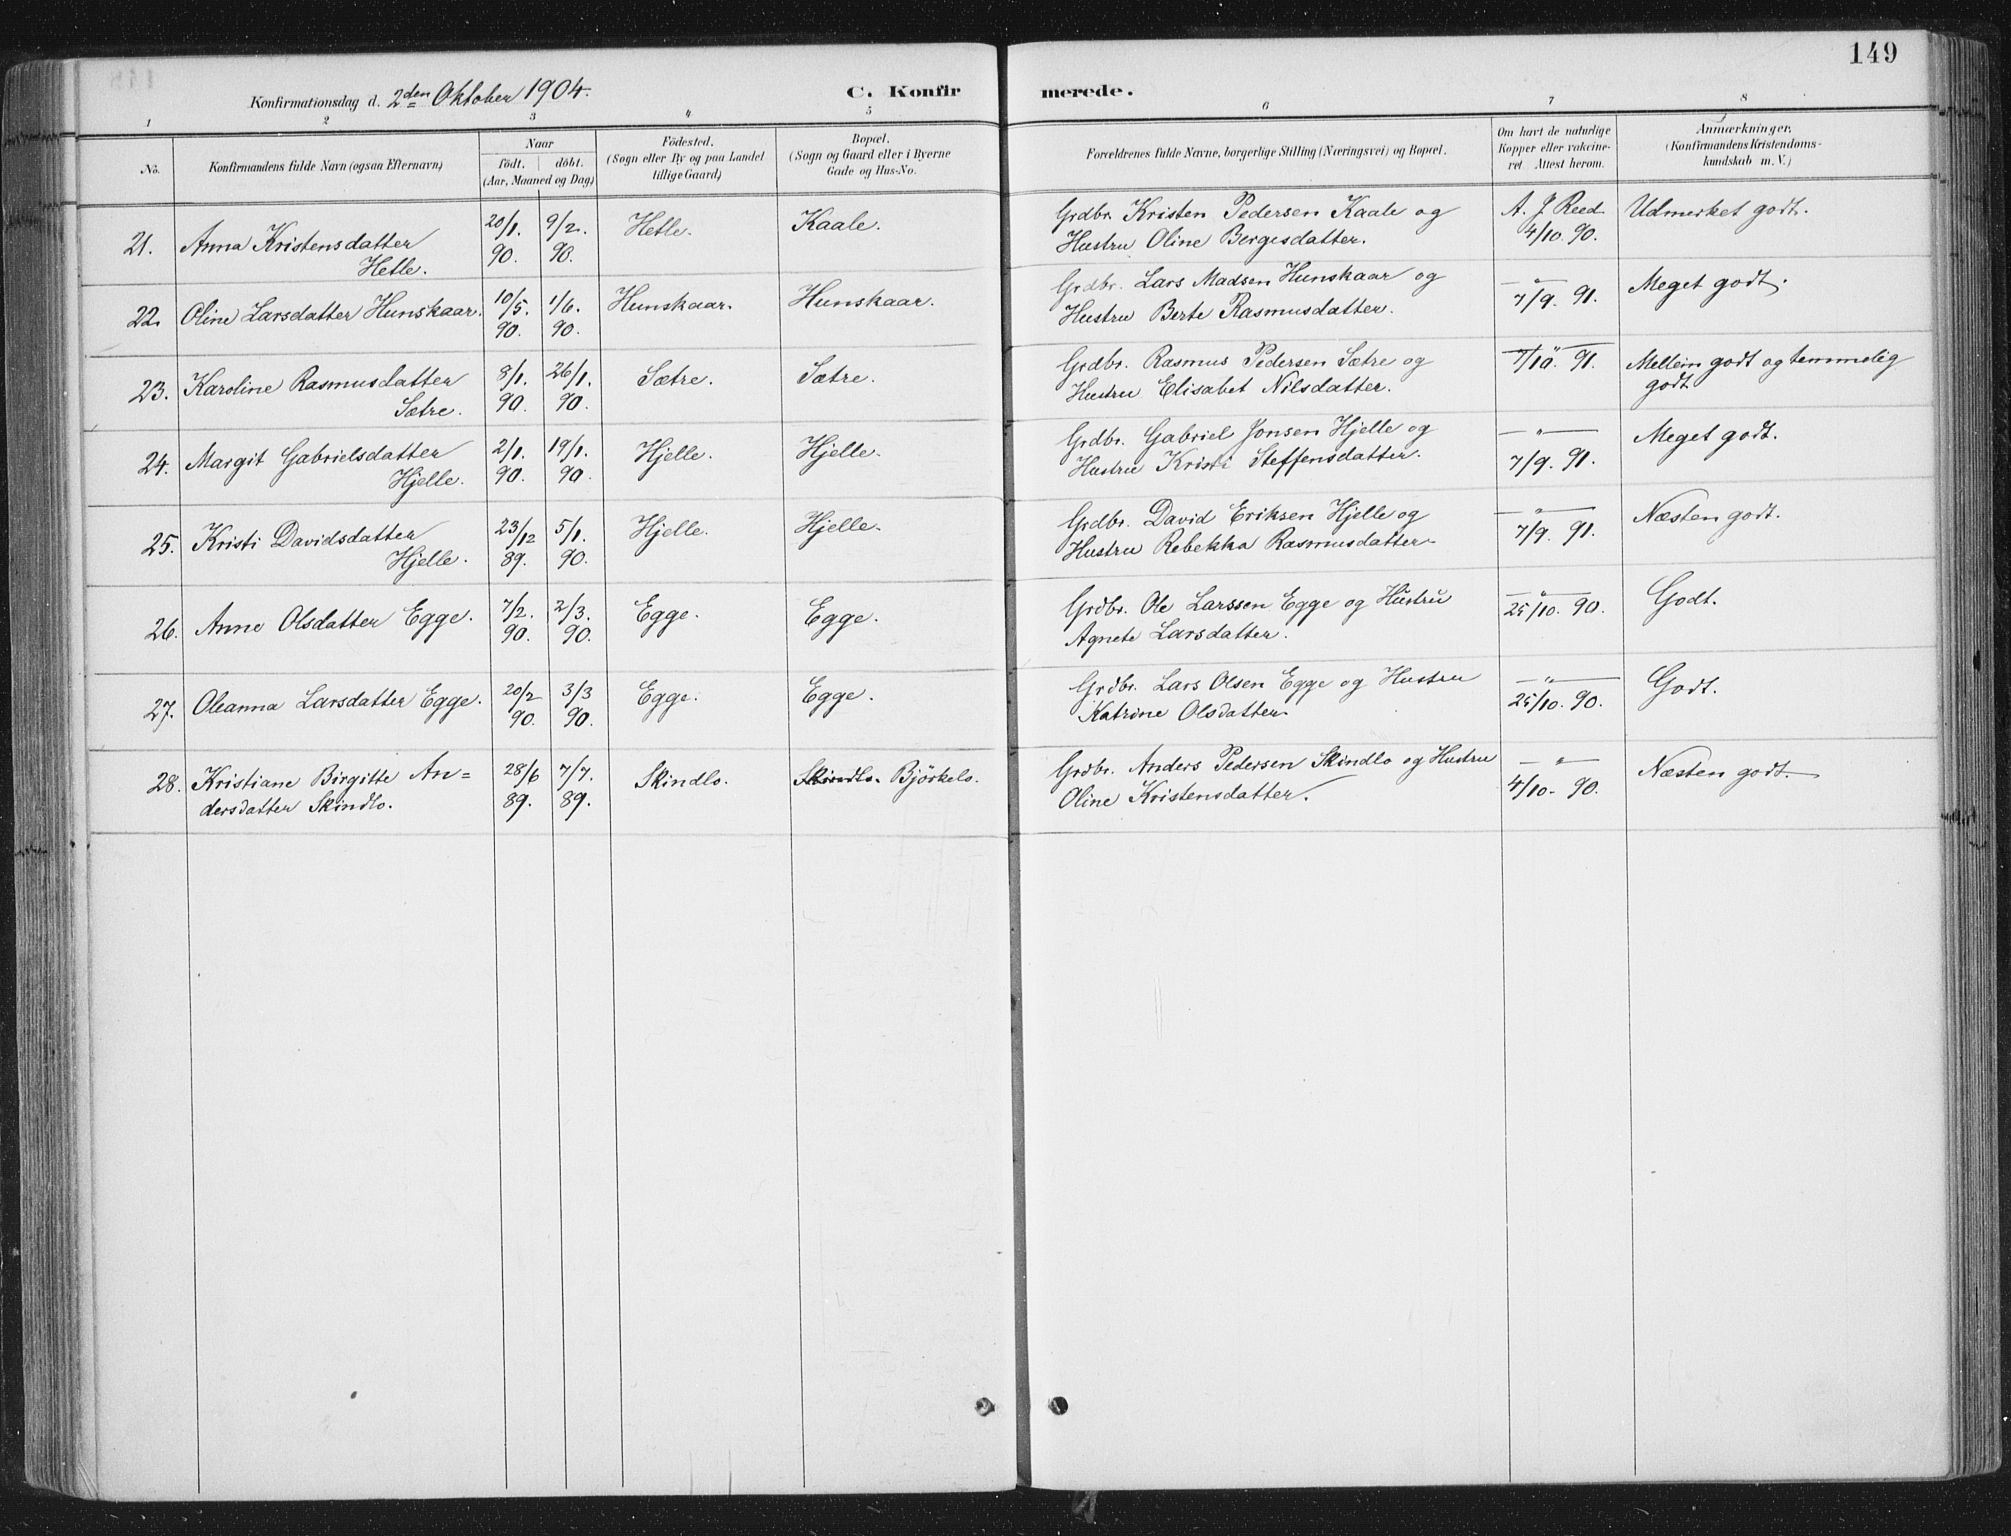 149
Konfirmationsdag d. 2den Oktober 1904.
C. Konfirmerede.
1 2 3 4 5 6 7 8
No.
Konfirmandens fulde Navn (ogsaa Efternavn)
Naar
födt. döbt.
(Aar, Maaned og Dag)
Födested.
(Sogn eller By og paa Landet
tillige Gaard)
Bopæl.
(Sogn og Gaard eller i Byerne
Gade og Hus-No.
Forældrenes fulde Navne, borgerlige Stilling (Næringsvei) og Bopæl.
Om havt de naturlige
Kopper eller vakcine-
ret. Attest herom.
Anmærkninger.
(Konfirmandens Kristendoms-
kundskab m. V.)
21. Anna Kristensdatter 20/1. 9/2. Hetle. Kaale. Grdbr. Kristen Pedersen Kaale og A. J. Reed Udmerket godt.
Hetle. 90. 90. Hustru Oline Bergesdatter. 4/10. 90.
22. Oline Larsdatter Hunskaar. 10/5. 1/6. Hunskaar. Hunskaar. Grdbr. Lars Madsen Hunskaar og — " — Meget godt.
90. 90. Hustru Berte Rasmusdatter. 7/9. 91.
23. Karoline Rasmusdatter 8/1. 26/1. Sætre. Sætre. Grdbr. Rasmus Pedersen Sætre og — " — 7/10. 91. Mellem godt og temmelig
Sætre. 90. 90. Hustru Elisabet Nilsdatter. godt
24. Margit Gabrielsdatter 2/1. 19/1. Hjelle. Hjelle. Grdbr. Gabriel Jonsen Hjelle og — " — Meget godt.
Hjelle. 90. 90. Hustru Kristi Steffensdatter. 7/9. 91.
25. Kristi Davidsdatter 23/12 5/1. Hjelle. Hjelle. Grdbr. David Eriksen Hjelle og — " — Næsten godt.
Hjelle. 89. 90. Hustru Rebekka Rasmusdatter. 7/9. 91.
26. Anne Olsdatter Egge. 7/2. 2/3. Egge. Egge. Grdbr. Ole Larssen Egge og Hustru — " — Godt.
90. 90. Agnete Larsdatter. 25/10. 90.
27. Oleanna Larsdatter Egge. 20/2 3/3 Egge. Egge. Grdbr. Lars Olsen Egge og Hustru — " — Godt.
90. 90. Katrine Olsdatter. 25/10. 90.
28. Kristiane Birgitte An= 28/6 7/7. Skindlo. Skindlo. Björkelo. Grdbr. Anders Pedersen Skindlo og Hustru — " — Næsten godt.
dersdatter Skindlo. 89. 89. Oline Kristensdatter. 4/10. 90.